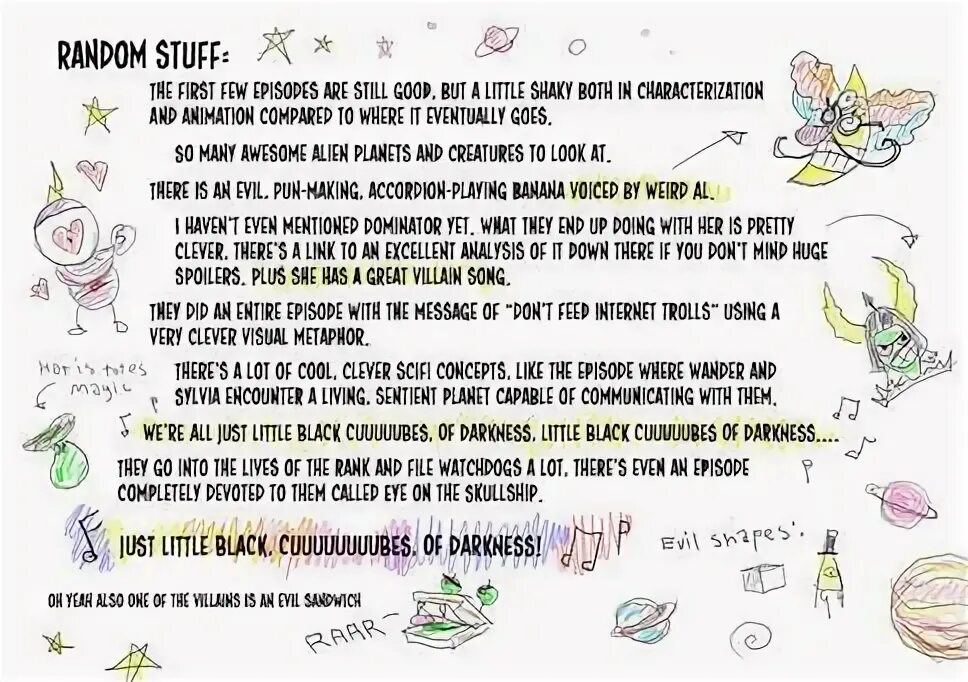 RANDOM STUFF:
THE FIRST FEW EPISODES ARE STILL GOOD, BUT A LITTLE SHAKY BOTH IN CHARACTERIZATION
AND ANIMATION COMPARED TO WHERE IT EVENTUALLY GOES.
SO MANY AWESOME ALIEN PLANETS AND CREATURES TO LOOK AT.
THERE IS AN EVIL, PUN-MAKING, ACCORDION-PLAYING BANANA VOICED BY WEIRD AL.
I HAVEN'T EVEN MENTIONED DOMINATOR YET. WHAT THEY END UP DOING WITH HER IS PRETTY
CLEVER. THERE'S A LINK TO AN EXCELLENT ANALYSIS OF IT DOWN THERE IF YOU DON'T MIND HUGE
SPOILERS. PLUS SHE HAS A GREAT VILLAIN SONG.
THEY DID AN ENTIRE EPISODE WITH THE MESSAGE OF "DON'T FEED INTERNET TROLLS" USING A
VERY CLEVER VISUAL METAPHOR.
Hat is totes
magic
THERE'S A LOT OF COOL, CLEVER SCIFI CONCEPTS, LIKE THE EPISODE WHERE WANDER AND
SYLVIA ENCOUNTER A LIVING, SENTIENT PLANET CAPABLE OF COMMUNICATING WITH THEM.
WE'RE ALL JUST LITTLE BLACK CUUUUUBES, OF DARKNESS, LITTLE BLACK CUUUUUBES OF DARKNESS....
THEY GO INTO THE LIVES OF THE RANK AND FILE WATCHDOGS A LOT, THERE'S EVEN AN EPISODE
COMPLETELY DEVOTED TO THEM CALLED EYE ON THE SKULLSHIP.
JUST LITTLE BLACK, CUUUUUUUUBES, OF DARKNESS!
Evil shapes:
OH YEAH ALSO ONE OF THE VILLAINS IS AN EVIL SANDWICH
RAAR